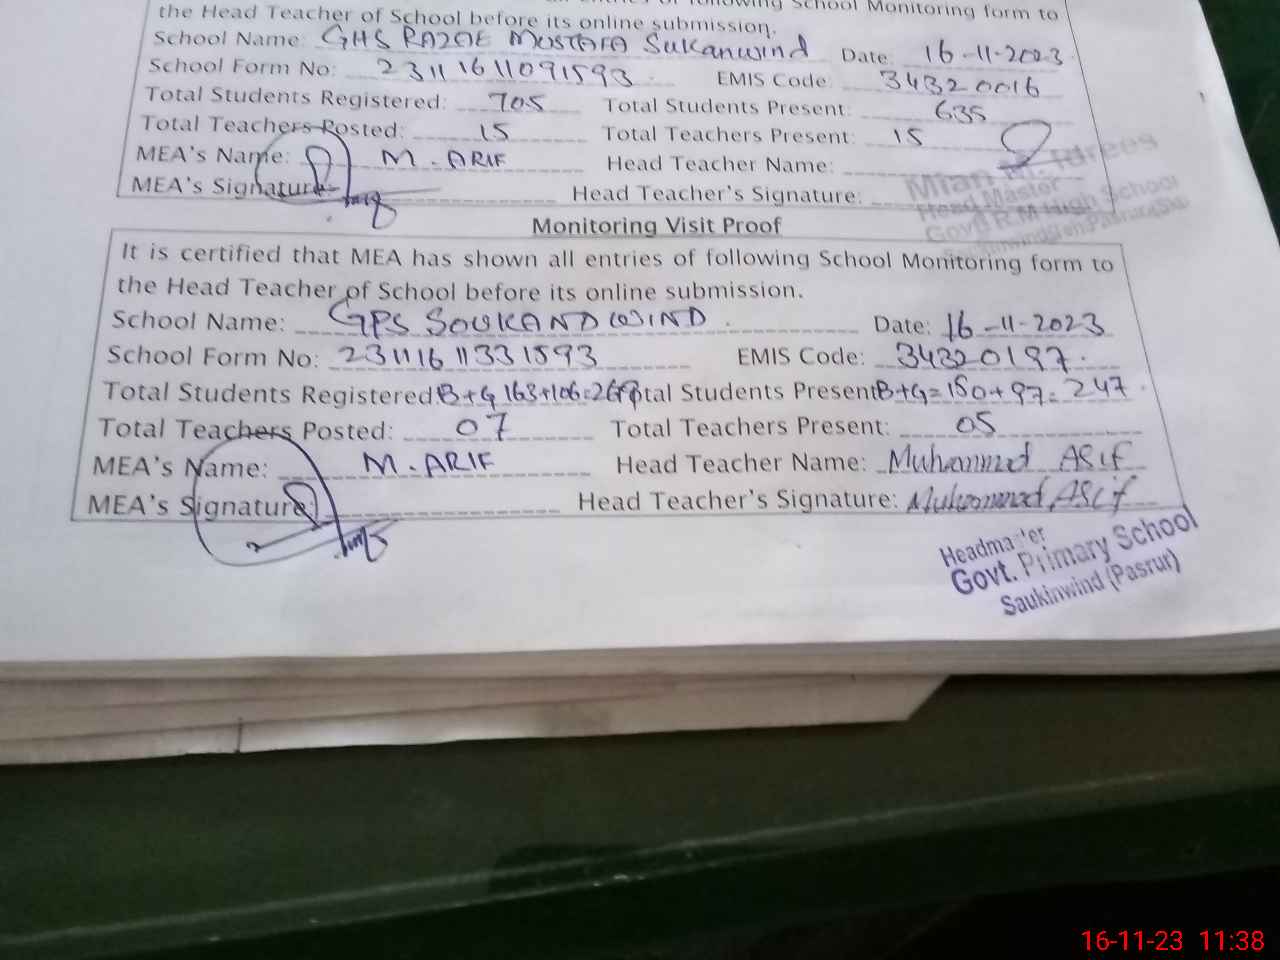 all entries of following School Monitoring form to
the Head Teacher of School before its online submission.
School Name: GHS RAZAE MOSTAFA Sukanwind Date: 16-11-2023
School Form No: 23111611091593 EMIS Code: 34320016
Total Students Registered: 705 Total Students Present: 635
Total Teachers Posted: 15 Total Teachers Present: 15
MEA's Name: M. ARIF Head Teacher Name:
MEA's Signature Head Teacher's Signature:
Mian M. Idrees
Head Master
Govt R.M High School
Monitoring Visit Proof
It is certified that MEA has shown all entries of following School Monitoring form to
the Head Teacher of School before its online submission.
School Name: GPS SOUKANDWIND Date: 16-11-2023
School Form No: 23111611331593 EMIS Code: 34320197
Total Students Registered B+G 163+106=269 Total Students Present B+G=150+97=247
Total Teachers Posted: 07 Total Teachers Present: 05
MEA's Name: M. ARIF Head Teacher Name: Muhammad ASif
MEA's Signature Head Teacher's Signature: Muhammad ASif
Headmaster
Govt. Primary School
Saukinwind (Pasrur)
16-11-23 11:38